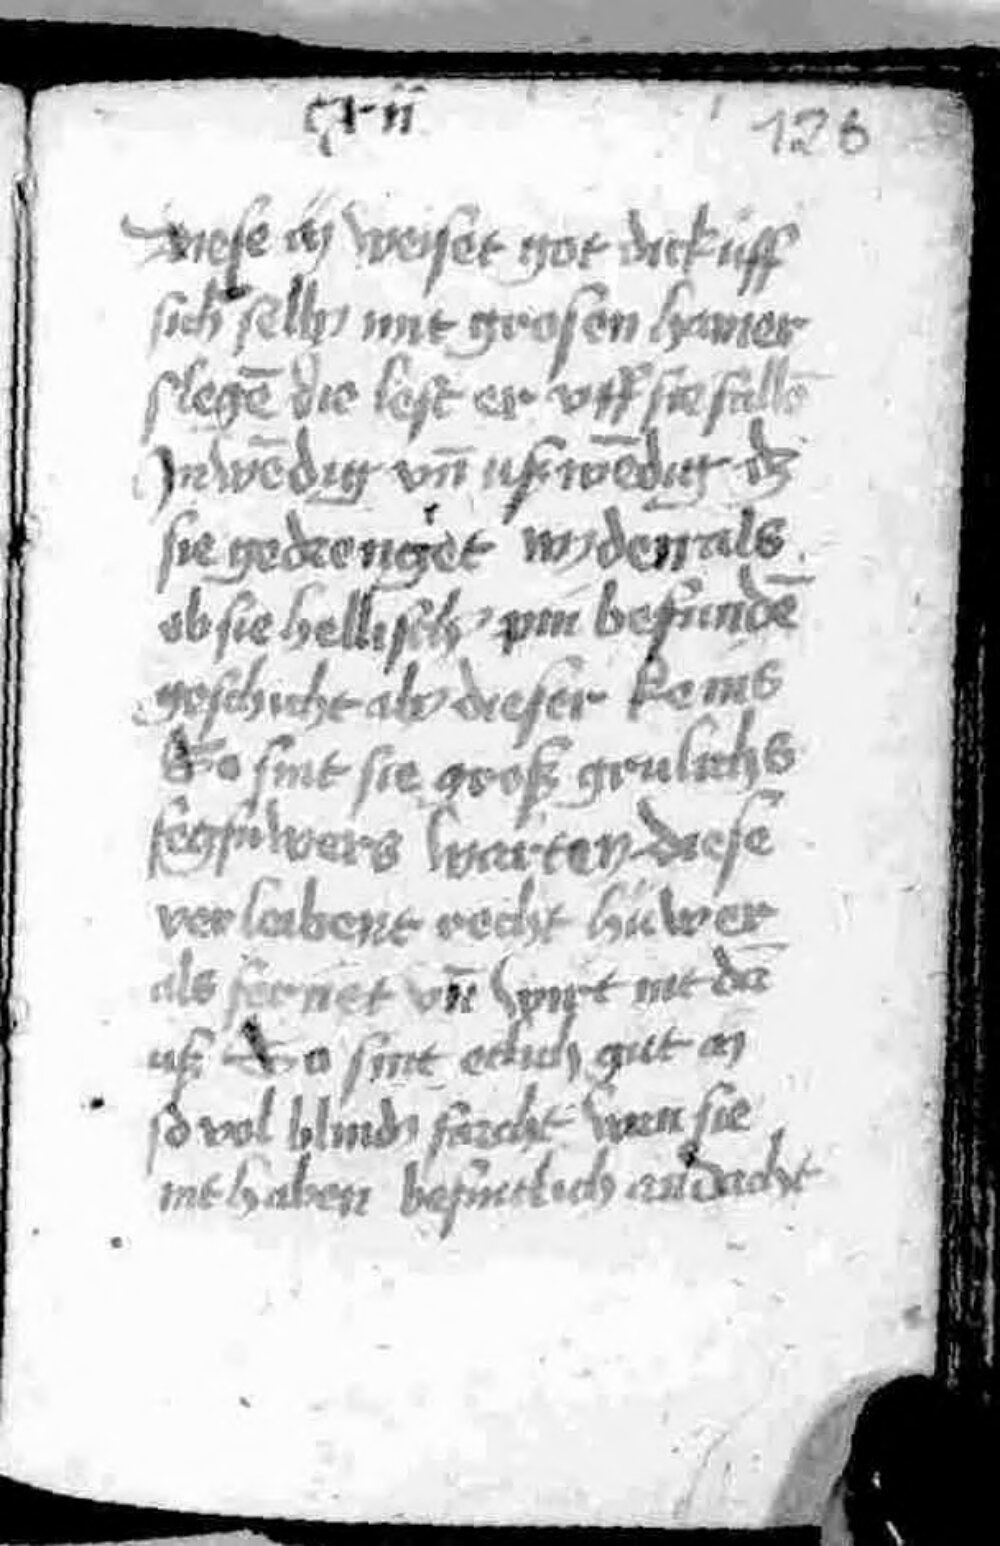 126
Diese iij weiset got dick uff
sich selbs mit grosen hamer
slegē die lest er uff sie fallē
Inwēdig vn̄ uswēdig dz
sie gedrenget werden als
ob sie hellisch pin befundē
geschicht als dieser keins
So sint sie groß grulichs
fegfuwers warten diese
verleibent recht hüwer
als fernet vn̄ wirt nit dā
us So sint etlich gut
so vol blinds forcht wan sie
nit haben befintlich andacht